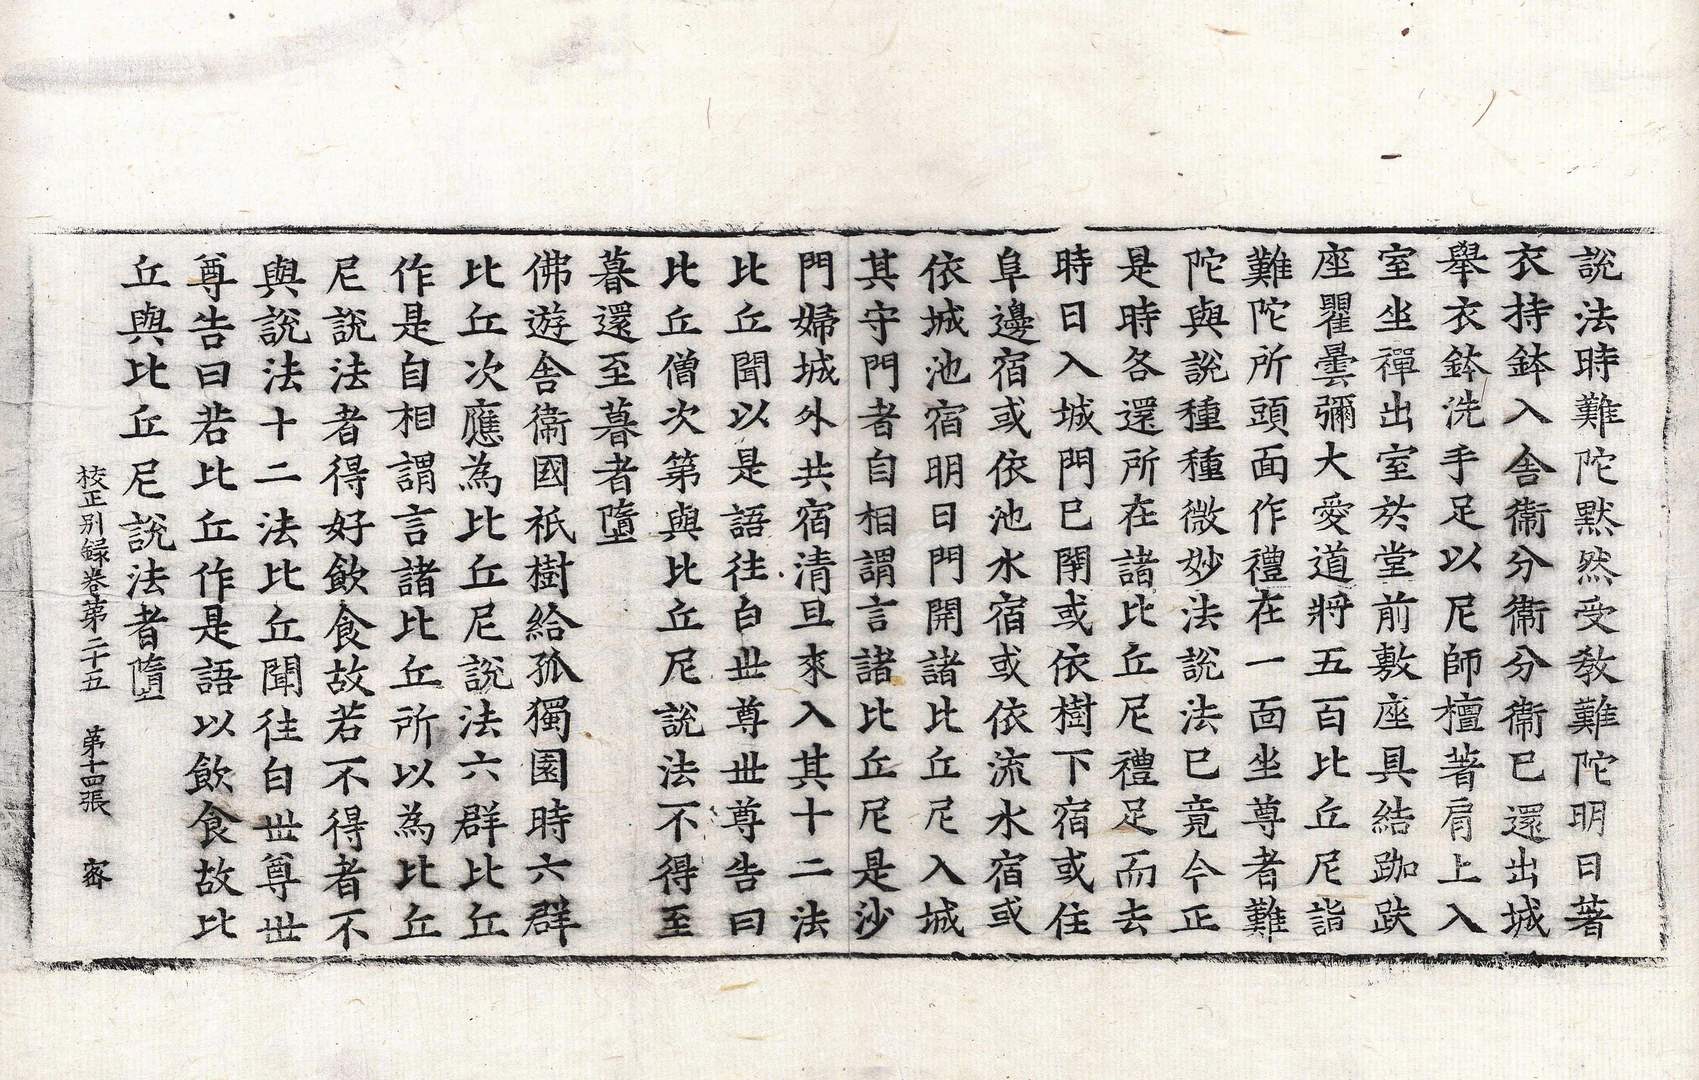 說法時難陀黙然受教難陀明日著
衣持鉢入舎衞分衞分衞已還出城
舉衣鉢洗手足以尼師檀著肩上入
室坐禪出室於堂前敷座具結跏趺
座瞿曇彌大愛道將五百比丘尼詣
難陀所頭面作禮在一面坐尊者難
陀與說種種微妙法說法已竟今正
是時各還所在諸比丘尼禮足而去
時日入城門已閇或依樹下宿或住
阜邊宿或依池水宿或依流水宿或
依城池宿明日門開諸比丘尼入城
其守門者自相謂言諸比丘尼是沙
門婦城外共宿清旦來入其十二法
比丘聞以是語往白世尊世尊告曰
比丘僧次第與比丘尼說法不得至
暮還至暮者墮
佛遊舎衞國祇樹給孤獨園時六群
比丘次應為比丘尼說法六群比丘
作是自相謂言諸比丘所以為比丘
尼說法者得好飲食故若不得者不
與說法十二法比丘聞往白世尊世
尊告曰若比丘作是語以飲食故比
丘與比丘尼說法者墮
校正別録巻第二十五 第十四張 密